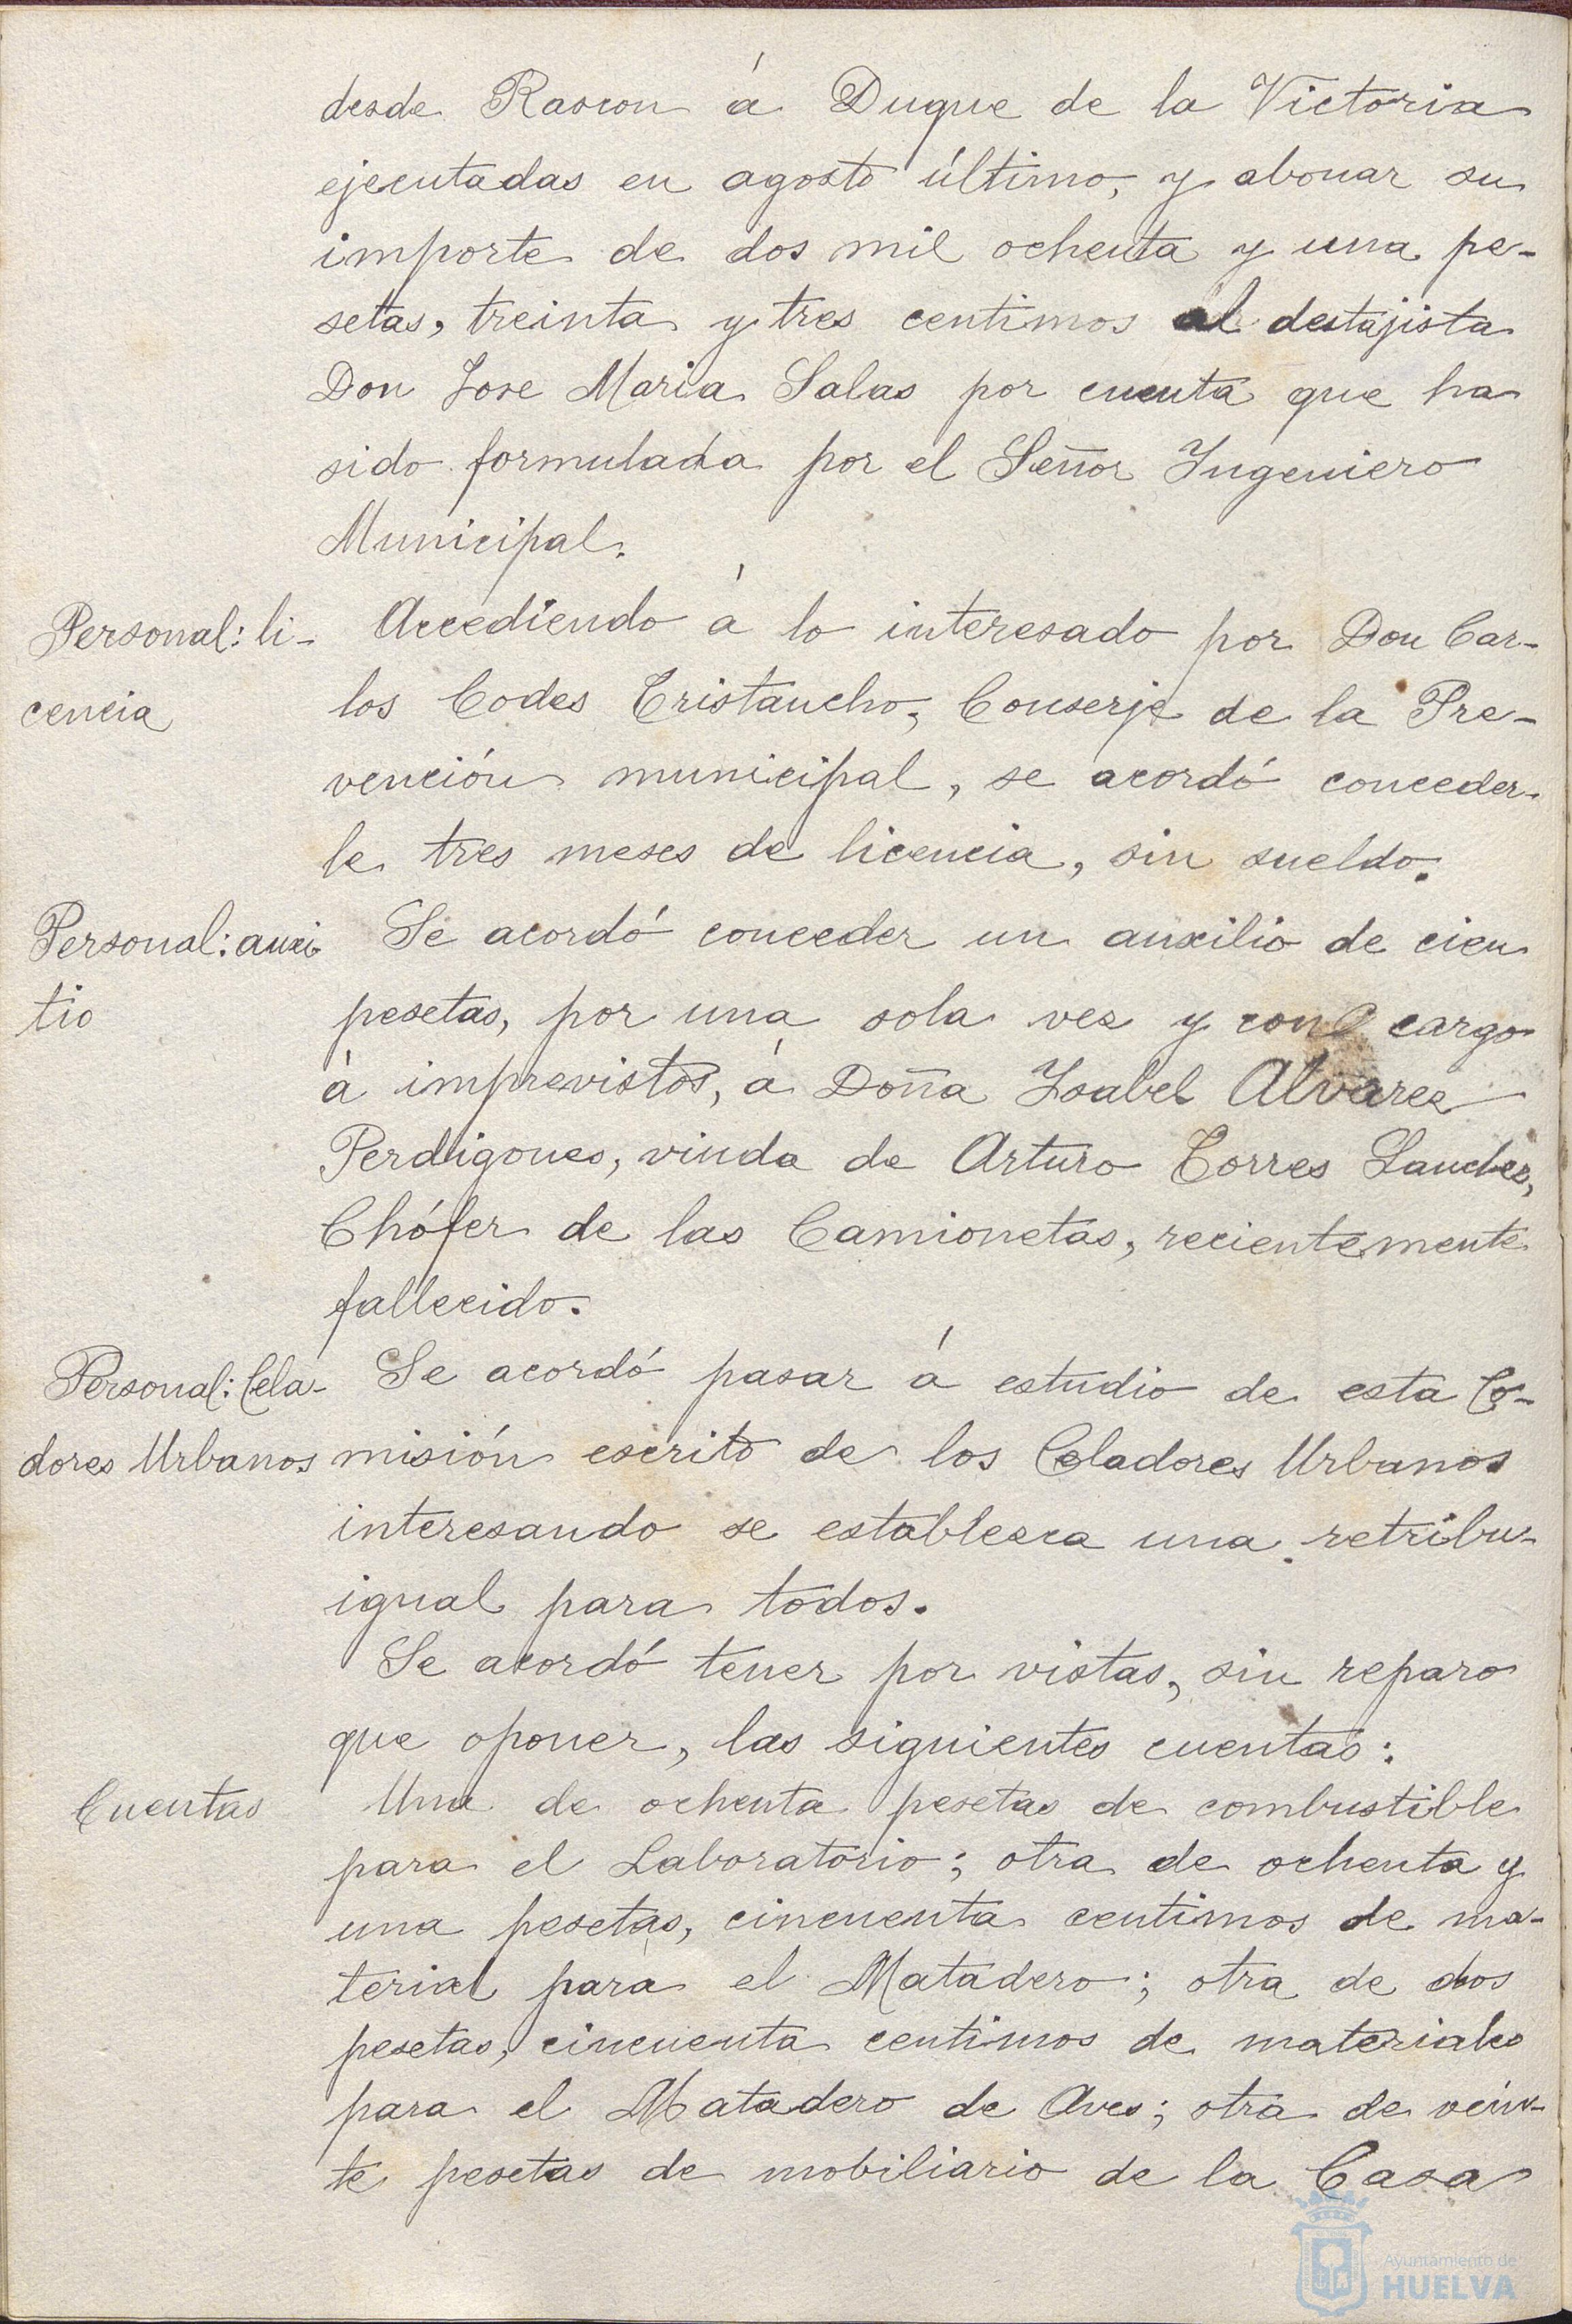 desde Rascon á Duque de la Victoria
ejecutadas en agosto último, y abonar su
importe de dos mil ochenta y una pe-
setas, treinta y tres centimos al destajista
Don Jose Maria Salas por cuenta que ha
sido formulada por el Señor Ingeniero
Municipal.
Personal: li-
cencia
Accediendo á lo interesado por Don Car-
los Codes Cristancho, Conserje de la Pre-
vención municipal, se acordó conceder-
le tres meses de licencia, sin sueldo.
Personal: auxi
lio
Se acordó conceder un auxilio de cien
pesetas, por una sola vez y con cargo
á imprevistos, á Doña Isabel Alvarez
Perdigones, viuda de Arturo Torres Sanchez,
Chófer de las Camionetas, recientemente
fallecido.
Personal: Cela-
dores Urbanos
Se acordó pasar á estudio de esta Co-
misión escrito de los Celadores Urbanos
interesando se establezca una retribu-
igual para todos.
Se acordó tener por vistas, sin reparo
que oponer, las siguientes cuentas:
Cuentas
Una de ochenta pesetas de combustible
para el Laboratorio; otra de ochenta y
una pesetas, cincuenta centimos de ma-
terial para el Matadero; otra de dos
pesetas, cincuenta centimos de materiales
para el Matadero de Aves; otra de vein-
te pesetas de mobiliario de la Casa
Ayuntamiento de
HUELVA